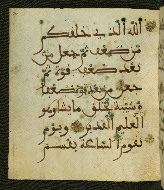 الله الذي خلقكم
من ضعف ثم جعل من
بعد ضعف قوة ثم
جعل من بعد قوة ضعفا
وشيبة يخلق ما يشاء وهو
العليم القدير ويوم
تقوم الساعة يقسم